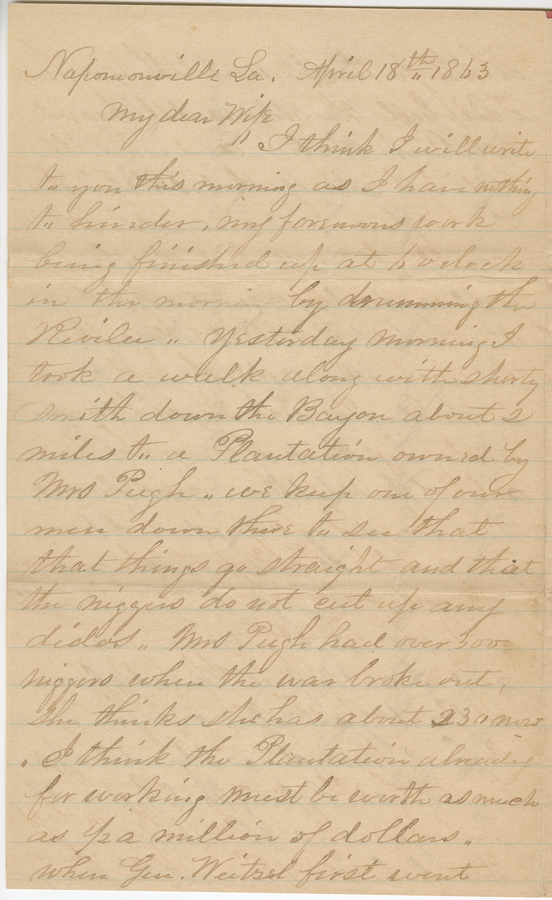 Napomonville La. April 18th 1863
My dear Wife
" I think I will write
to you this morning as I have nothing
to hinder, my forenoons work
being finished up at 6 oclock
in the morning by drumming the
Revilee " Yesterday morning I
took a walk along with shorty
Smith down the Bayou about 2
miles to a Plantation owned by
Mrs Pugh " we keep one of our
men down there to see that
that things go straight and that
the niggers do not cut up any
didos " Mrs Pugh had over 300
niggers when the war broke out,
She thinks she has about 230 now
. I think the Plantation already
for working must be worth as much
as 1/2 a million of dollars "
when Gen. Weitzel first went